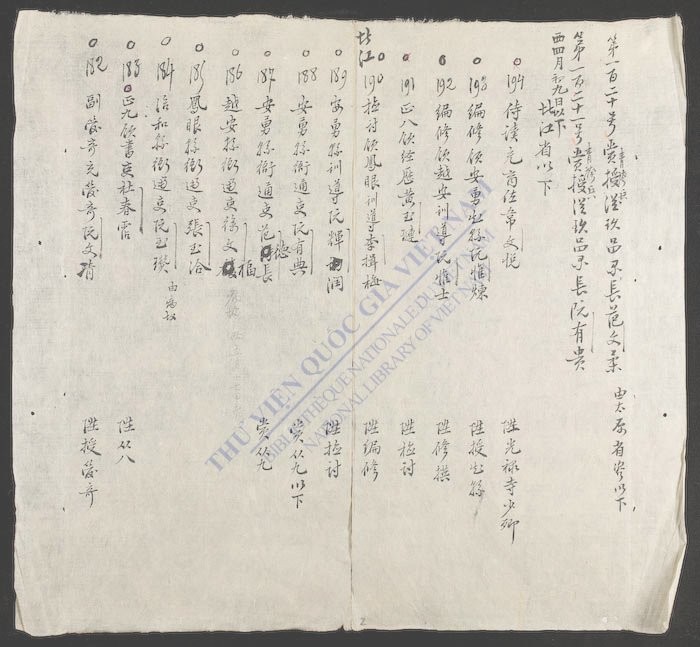 第一百二十号賞授從玖品百長范文柔 由太原省咨以下
第一百二十一号賞授從玖品百長阮有貴
四月初九日以下
北江省以下
194 侍讀充商佐韋文悅 陞光祿寺少卿
193 編修領安勇知縣阮惟煉 陞授知縣
192 編修領越安訓導阮惟士 陞修撰
191 正八領經歷黃玉璉 陞檢討
北江
190 檢討領鳳眼訓導李揖梅 陞編修
189 安勇縣訓導阮輝潤 陞檢討
188 安勇縣衙通吏阮有典 賞從九以下
187 安勇縣衙通吏范德長 賞從九
186 越安縣衙通吏 文福
185 鳳眼縣衙通吏張玉洽
184 洽和縣衙通吏阮玉瓚
183 正九領書吏杜春雷 陞從八
182 副 奇充 奇阮文清 陞授 奇
THƯ VIỆN QUỐC GIA VIỆT NAM
BIBLIOTHÈQUE NATIONALE DU VIETNAM
NATIONAL LIBRARY OF VIETNAM
2